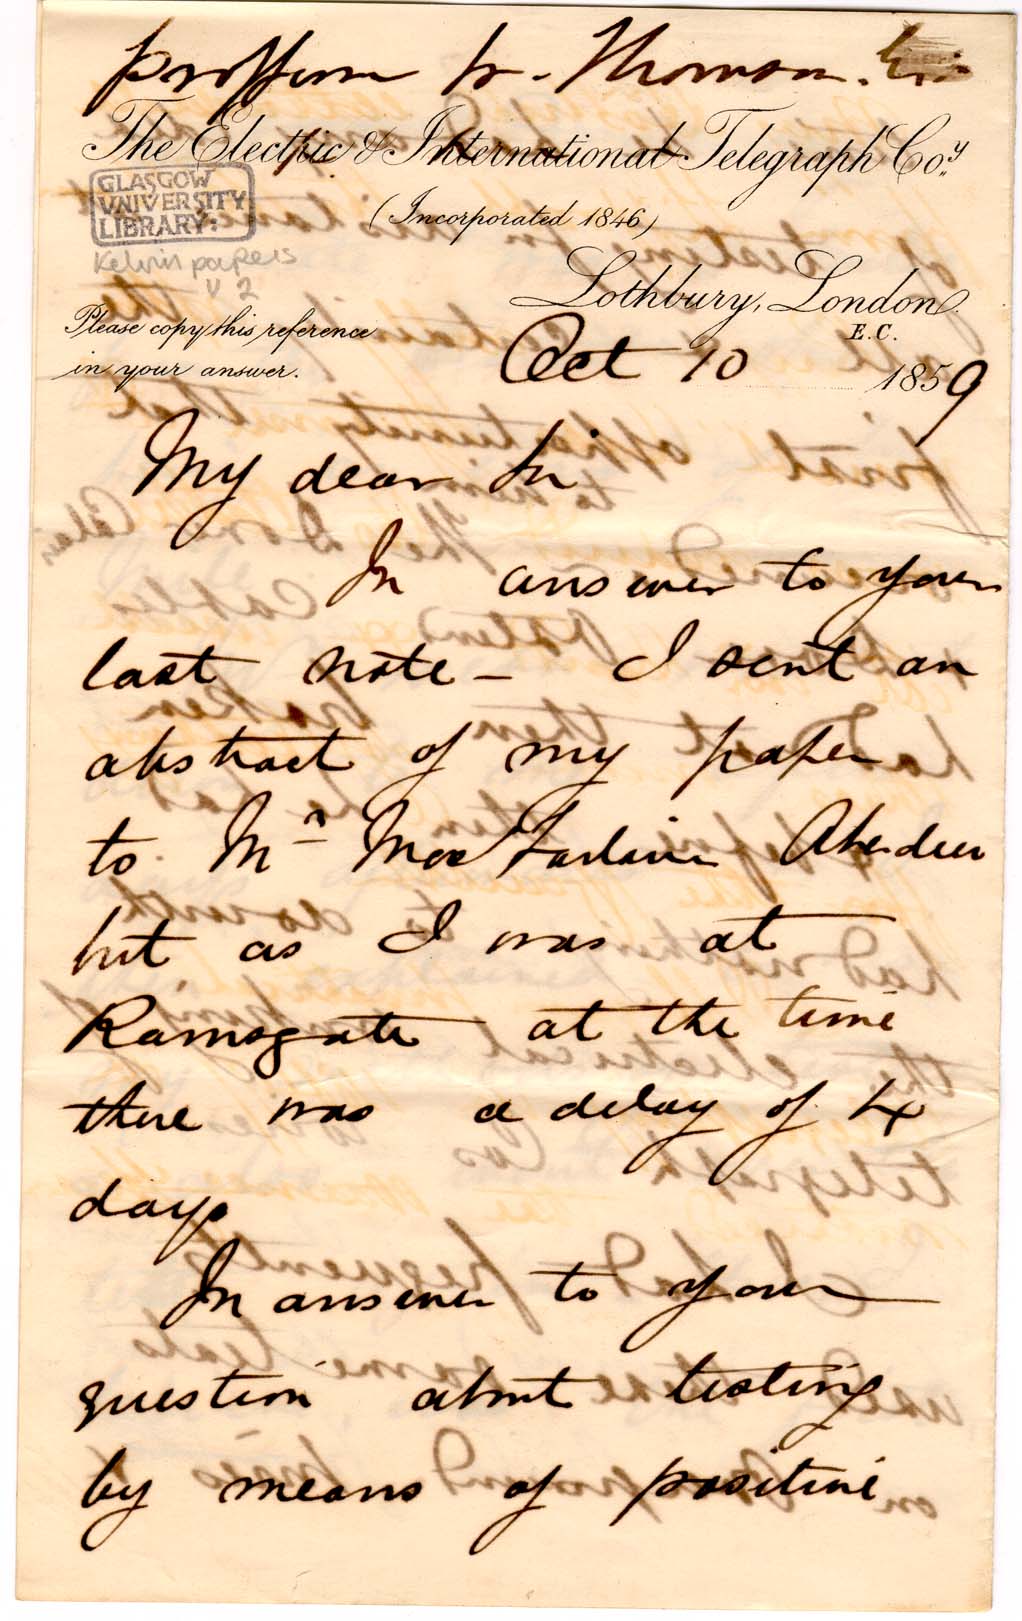 Professor W. Thomson.
The Electric & International Telegraph Coy.
GLASGOW
UNIVERSITY
LIBRARY:
(Incorporated 1846)
Kelvin papers
v 2
Lothbury, London.
E.C.
Please copy this reference
in your answer.
Oct 10 1859
My dear Sir
In answer to your
last note — I sent an
abstract of my paper
to Mr MacFarlane Aberdeen
but as I was at
Ramsgate at the time
there was a delay of 4
days
In answer to your
question about testing
by means of positive